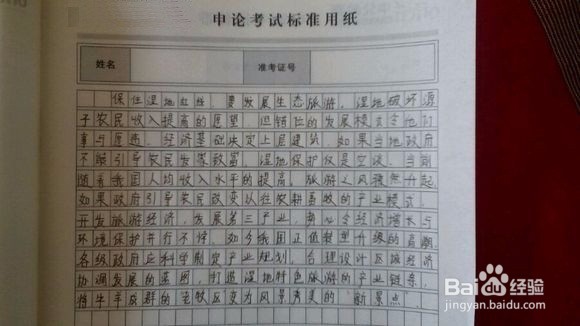 申论考试标准用纸
姓名 准考证号
保住湿地红线，要发展生态旅游。湿地破坏源
于农民收入提高的愿望，但错位的发展模式令他们
事与愿违。经济基础决定上层建筑，如果当地政府
不能引导农民发家致富，湿地保护仅是空谈。当前
随着我国人均收入水平的提高，旅游之风
如果政府引导农民改变以往农耕畜牧的产业模式，
开发旅游经济，发展第三产业，势必令经济增长与
环境保护并行不悖。如今我国正值转型升级的
各级政府应科学制定产业规划，合理设计区域经济
协调发展的蓝图，打造湿地特色旅游的产业链条，
将牛羊成群的 牧区变为风景秀美的“新景点”
Baidu经验
jingyan.baidu.com